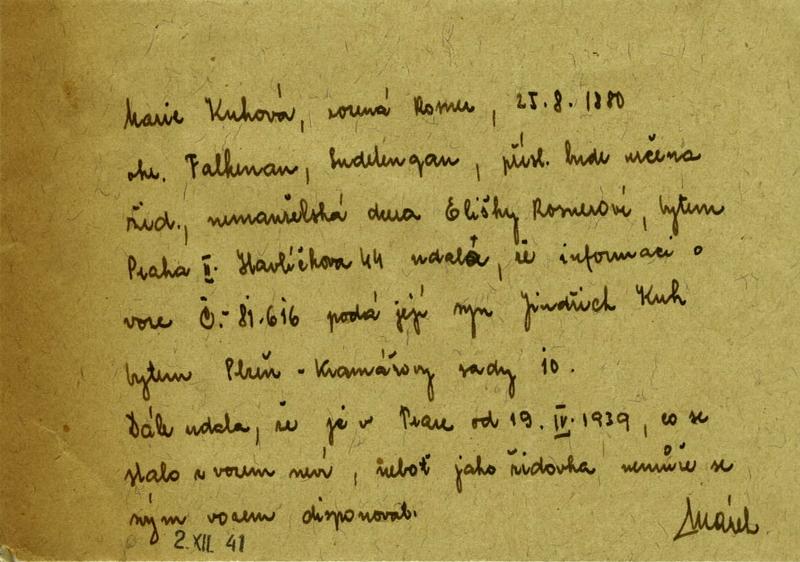 Marie Kuhová, rozená Rosner, 25.8.1880
okr. Falkenau, Sudetengau, přísl. bude určena
žid., nemanželská dcera Elišky Rosnerové, bytem
Praha II. Havlíčkova 44 udala, že informaci o
voze Č.- 81.616 podá její syn Jindřich Kuh
bytem Plzeň - Kramářovy sady 10.
Dále udala, že je v Praze od 19. IV. 1939, co se
stalo s vozem neví, neboť jako židovka nemůže se
svým vozem disponovat.
2. XII 41